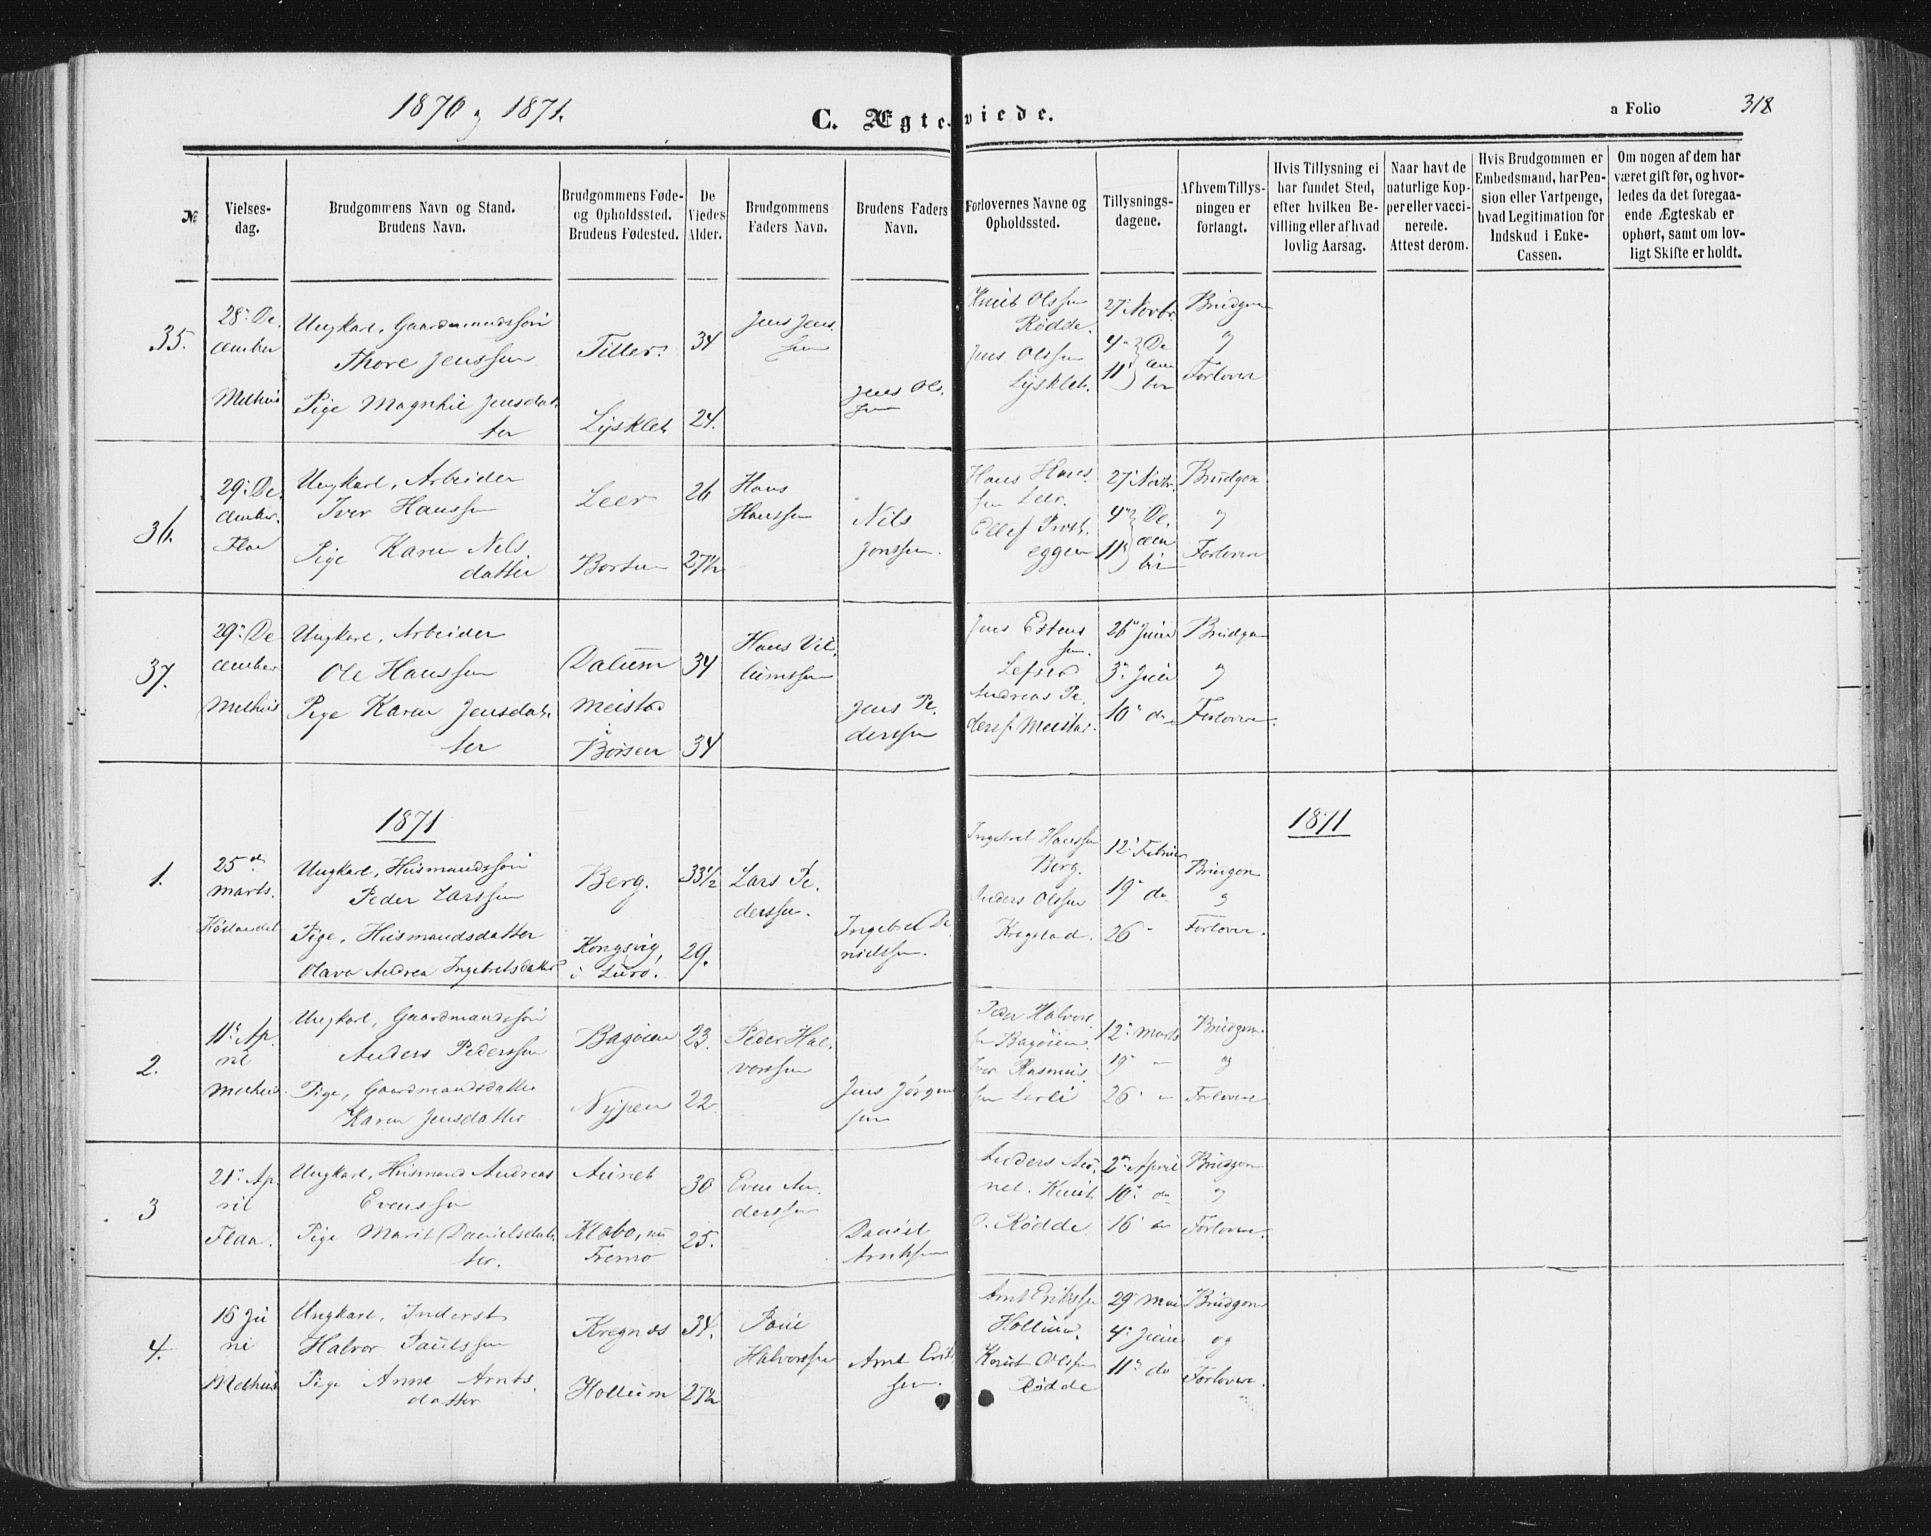 1870 og 1871.
C. Ægteviede.
a Folio
318
№
Vielses-
dag.
Brudgommens Navn og Stand.
Brudens Navn.
Brudgommens Føde-
og Opholdssted.
Brudens Fødested.
De
Viedes
Alder.
Brudgommens
Faders Navn.
Brudens Faders
Navn.
Forlovernes Navne og
Opholdssted.
Tillysnings-
dagene.
Af hvem Tillys-
ningen er
forlangt.
Hvis Tillysning ei
har fundet Sted,
efter hvilken Be-
villing eller af hvad
lovlig Aarsag.
Naar havt de
naturlige Kop-
per eller vacci-
nerede.
Attest derom.
Hvis Brudgommen er
Embedsmand, har Pen-
sion eller Vartpenge,
hvad Legitimation for
Indskud i Enke-
Cassen.
Om nogen af dem har
været gift før, og hvor-
ledes da det foregaa-
ende Ægteskab er
ophørt, samt om lov-
ligt Skifte er holdt.
35.
28de De
cember
Melhus
Ungkarl, Gaardmandssøn
Thore Jenssen
Pige Magnhil Jensdat
ter
Tiller
Lysklet
34
24.
Jens Jens
sen
Jens Ols
sen
Knut Olssen
Rødde.
Jens Olssen
Lysklet.
27 Novbr.
4de De
11te cem
ber
Brudgom
og
Forlovere
36.
29de De
cember.
Flaa
Ungkarl, Arbeider
Iver Hanssen
Pige Karen Nels
datter
Leer
Borten
26
27½
Hans
Hanssen
Nils
Jonssen.
Hans Hans
sen Leer.
Ellef Prest
eggen
27 Novbr.
4de De
11te cem
ber
Brudgom
og
Forlovere
37.
29de De
cember
Melhus
Ungkarl, Arbeider
Ole Hanssen
Pige Karen Jensdat
ter
Dalum
Meistad
i
Børsen
34
34
Hans Vil
lumssen
Jens Pe
derssen
Jens Estens
sen
Andreas Pe
derss. Meistad.
26 Juni
3de Juli
10de do
Brudgom
og
Forlovere.
1871
1871
1.
25de
Marts.
Ungkarl, Husmandssøn
Peder Larssen
Pige, Husmandsdatter
Olava Andrea Ingebretsdatter
Berg.
Kongsvig,
i Lurø.
33½
29.
Lars Pe
derssen.
Ingebret Da
nielssen.
Ingebret Hanssen
Berg.
Anders Olssen
Kregstad.
12 Februar
19 do
26 "
Brudgom
og
Forlovere.
2.
11te Ap
ril
Melhus
Ungkarl, Gaardmandssøn
Anders Pederssen
Pige, Gaardmandsdatter
Karen Jensdatter
Bagøien
Nypen
23.
22
Peder Hal
vorssen
Jens Jørgen
sen
Peder Halvors
sen Bagøien.
Iver Rasmus
sen Lerli
12 Marts
19 "
26 "
Brudgom
og
Forlovere
3
21de Ap
ril
Flaa.
Ungkarl, Husmand Andreas
Evenssen
Pige Marit Danielsdat
ter.
Aunet
Klæbo, nu
Fremo
30
25.
Even An
derssen
Daniel
Arntssen
Anders Au
net. Knut
O. Rødde
2de April
10de do
16 do
Brudgom
og
Forlovere.
4.
16 Ju
ni
Melhus
Ungkarl, Inderst
Halvor Paulssen
Pige Anne Arnts
datter
Kregnæs
Hollum
34.
27½
Poul
Halvorssen
Arnt Erik
sen.
Arnt Erikssen
Hollum.
Knut Olssen
Rødde
29 Mai
4de Juni
11te do
Brudgom
og
Forlovere.